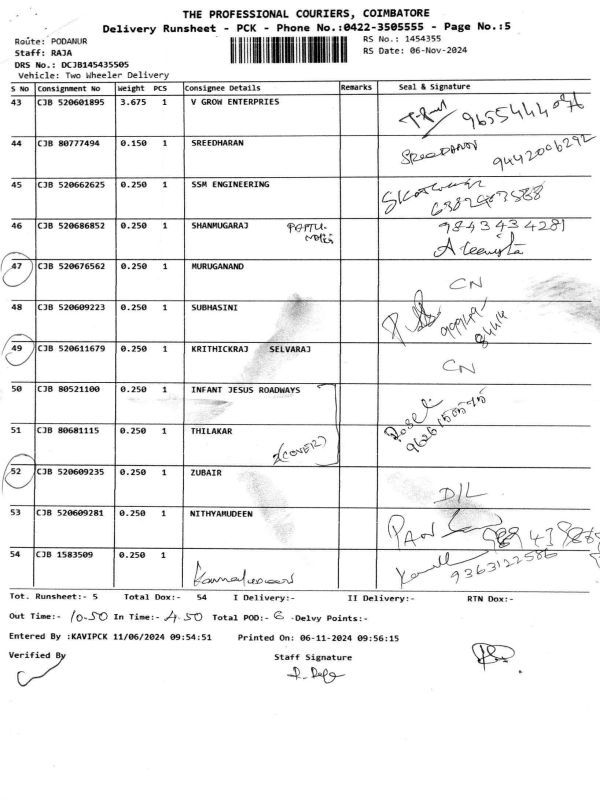 THE PROFESSIONAL COURIERS, COIMBATORE
Delivery Runsheet - PCK - Phone No.:0422-3505555 - Page No.:5
Route: PODANUR
RS No.: 1454355
Staff: RAJA
RS Date: 06-Nov-2024
DRS No.: DCJB145435505
Vehicle: Two Wheeler Delivery
S No Consignment No Weight PCS Consignee Details Remarks Seal & Signature
43 CJB 520601895 3.675 1 V GROW ENTERPRIES 9655444076
44 CJB 80777494 0.150 1 SREEDHARAN SREEDHARAN 9442006292
45 CJB 520662625 0.250 1 SSM ENGINEERING
46 CJB 520686852 0.250 1 SHANMUGARAJ 9843434281
47 CJB 520676562 0.250 1 MURUGANAND CN
48 CJB 520609223 0.250 1 SUBHASINI
49 CJB 520611679 0.250 1 KRITHICKRAJ SELVARAJ CN
50 CJB 80521100 0.250 1 INFANT JESUS ROADWAYS
51 CJB 80681115 0.250 1 THILAKAR
2(COVER)
52 CJB 520609235 0.250 1 ZUBAIR D/L
53 CJB 520609281 0.250 1 NITHYAMUDEEN
54 CJB 1583509 0.250 1 9363122586
Tot. Runsheet:- 5 Total Dox:- 54 I Delivery:- II Delivery:- RTN Dox:-
Out Time:- 10-50 In Time:- 4.50 Total POD:- 6 -Delvy Points:-
Entered By :KAVIPCK 11/06/2024 09:54:51 Printed On: 06-11-2024 09:56:15
Verified By Staff Signature